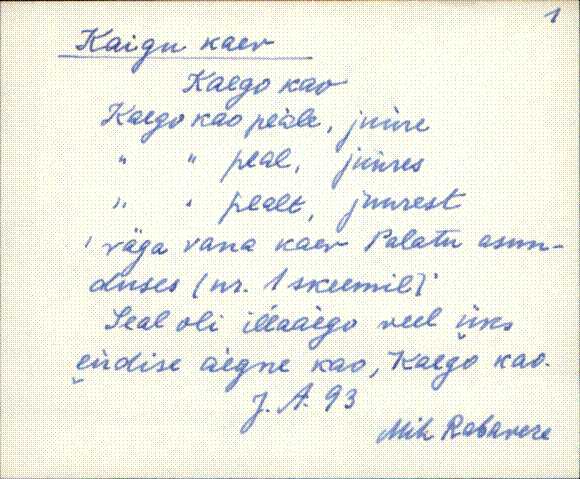 1
Kaigu kaev
Kaego kao
Kaego kao peale, juure
" " peal, juures
" " pealt, juurest
' väga vana kaev Palatu asun-
duses (nr. 1 skeemil)'
Seal oli illaaego veel üks
eńdise aegne kao, Kaego kao.
J. A. 93
Mih Rabavere